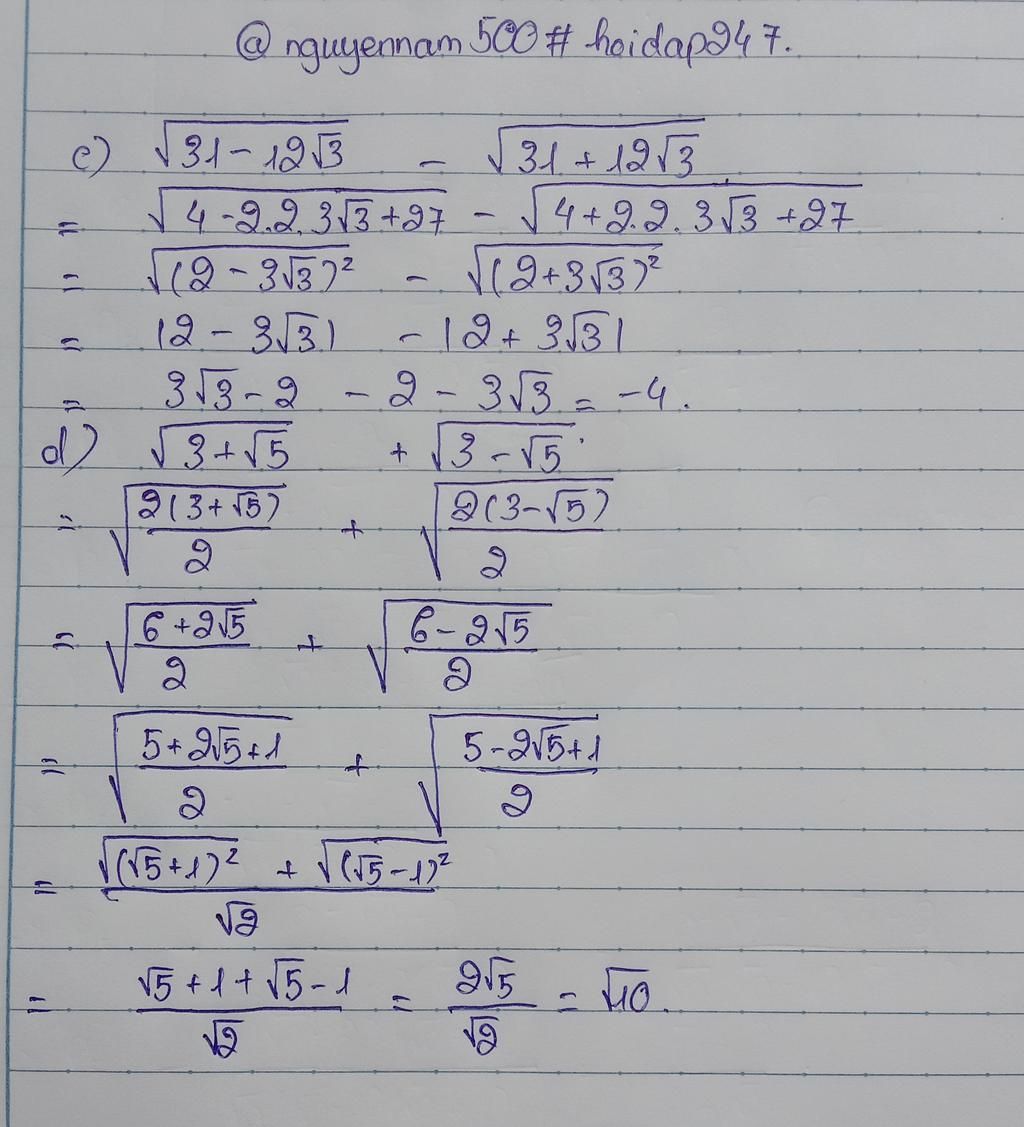 @nguyennam500#hoidap247.
c) √(31-12√3) - √(31+12√3)
= √(4-2.2.3√3+27) - √(4+2.2.3√3+27)
= √((2-3√3)²) - √((2+3√3)²)
= |2-3√3| - |2+3√3|
= 3√3-2 - 2-3√3 = -4.
d) √(3+√5) + √(3-√5)
= √(2(3+√5)/2) + √(2(3-√5)/2)
= √((6+2√5)/2) + √((6-2√5)/2)
= √((5+2√5+1)/2) + √((5-2√5+1)/2)
= (√((√5+1)²) + √((√5-1)²))/√2
= (√5+1+√5-1)/√2 = 2√5/√2 = √10.